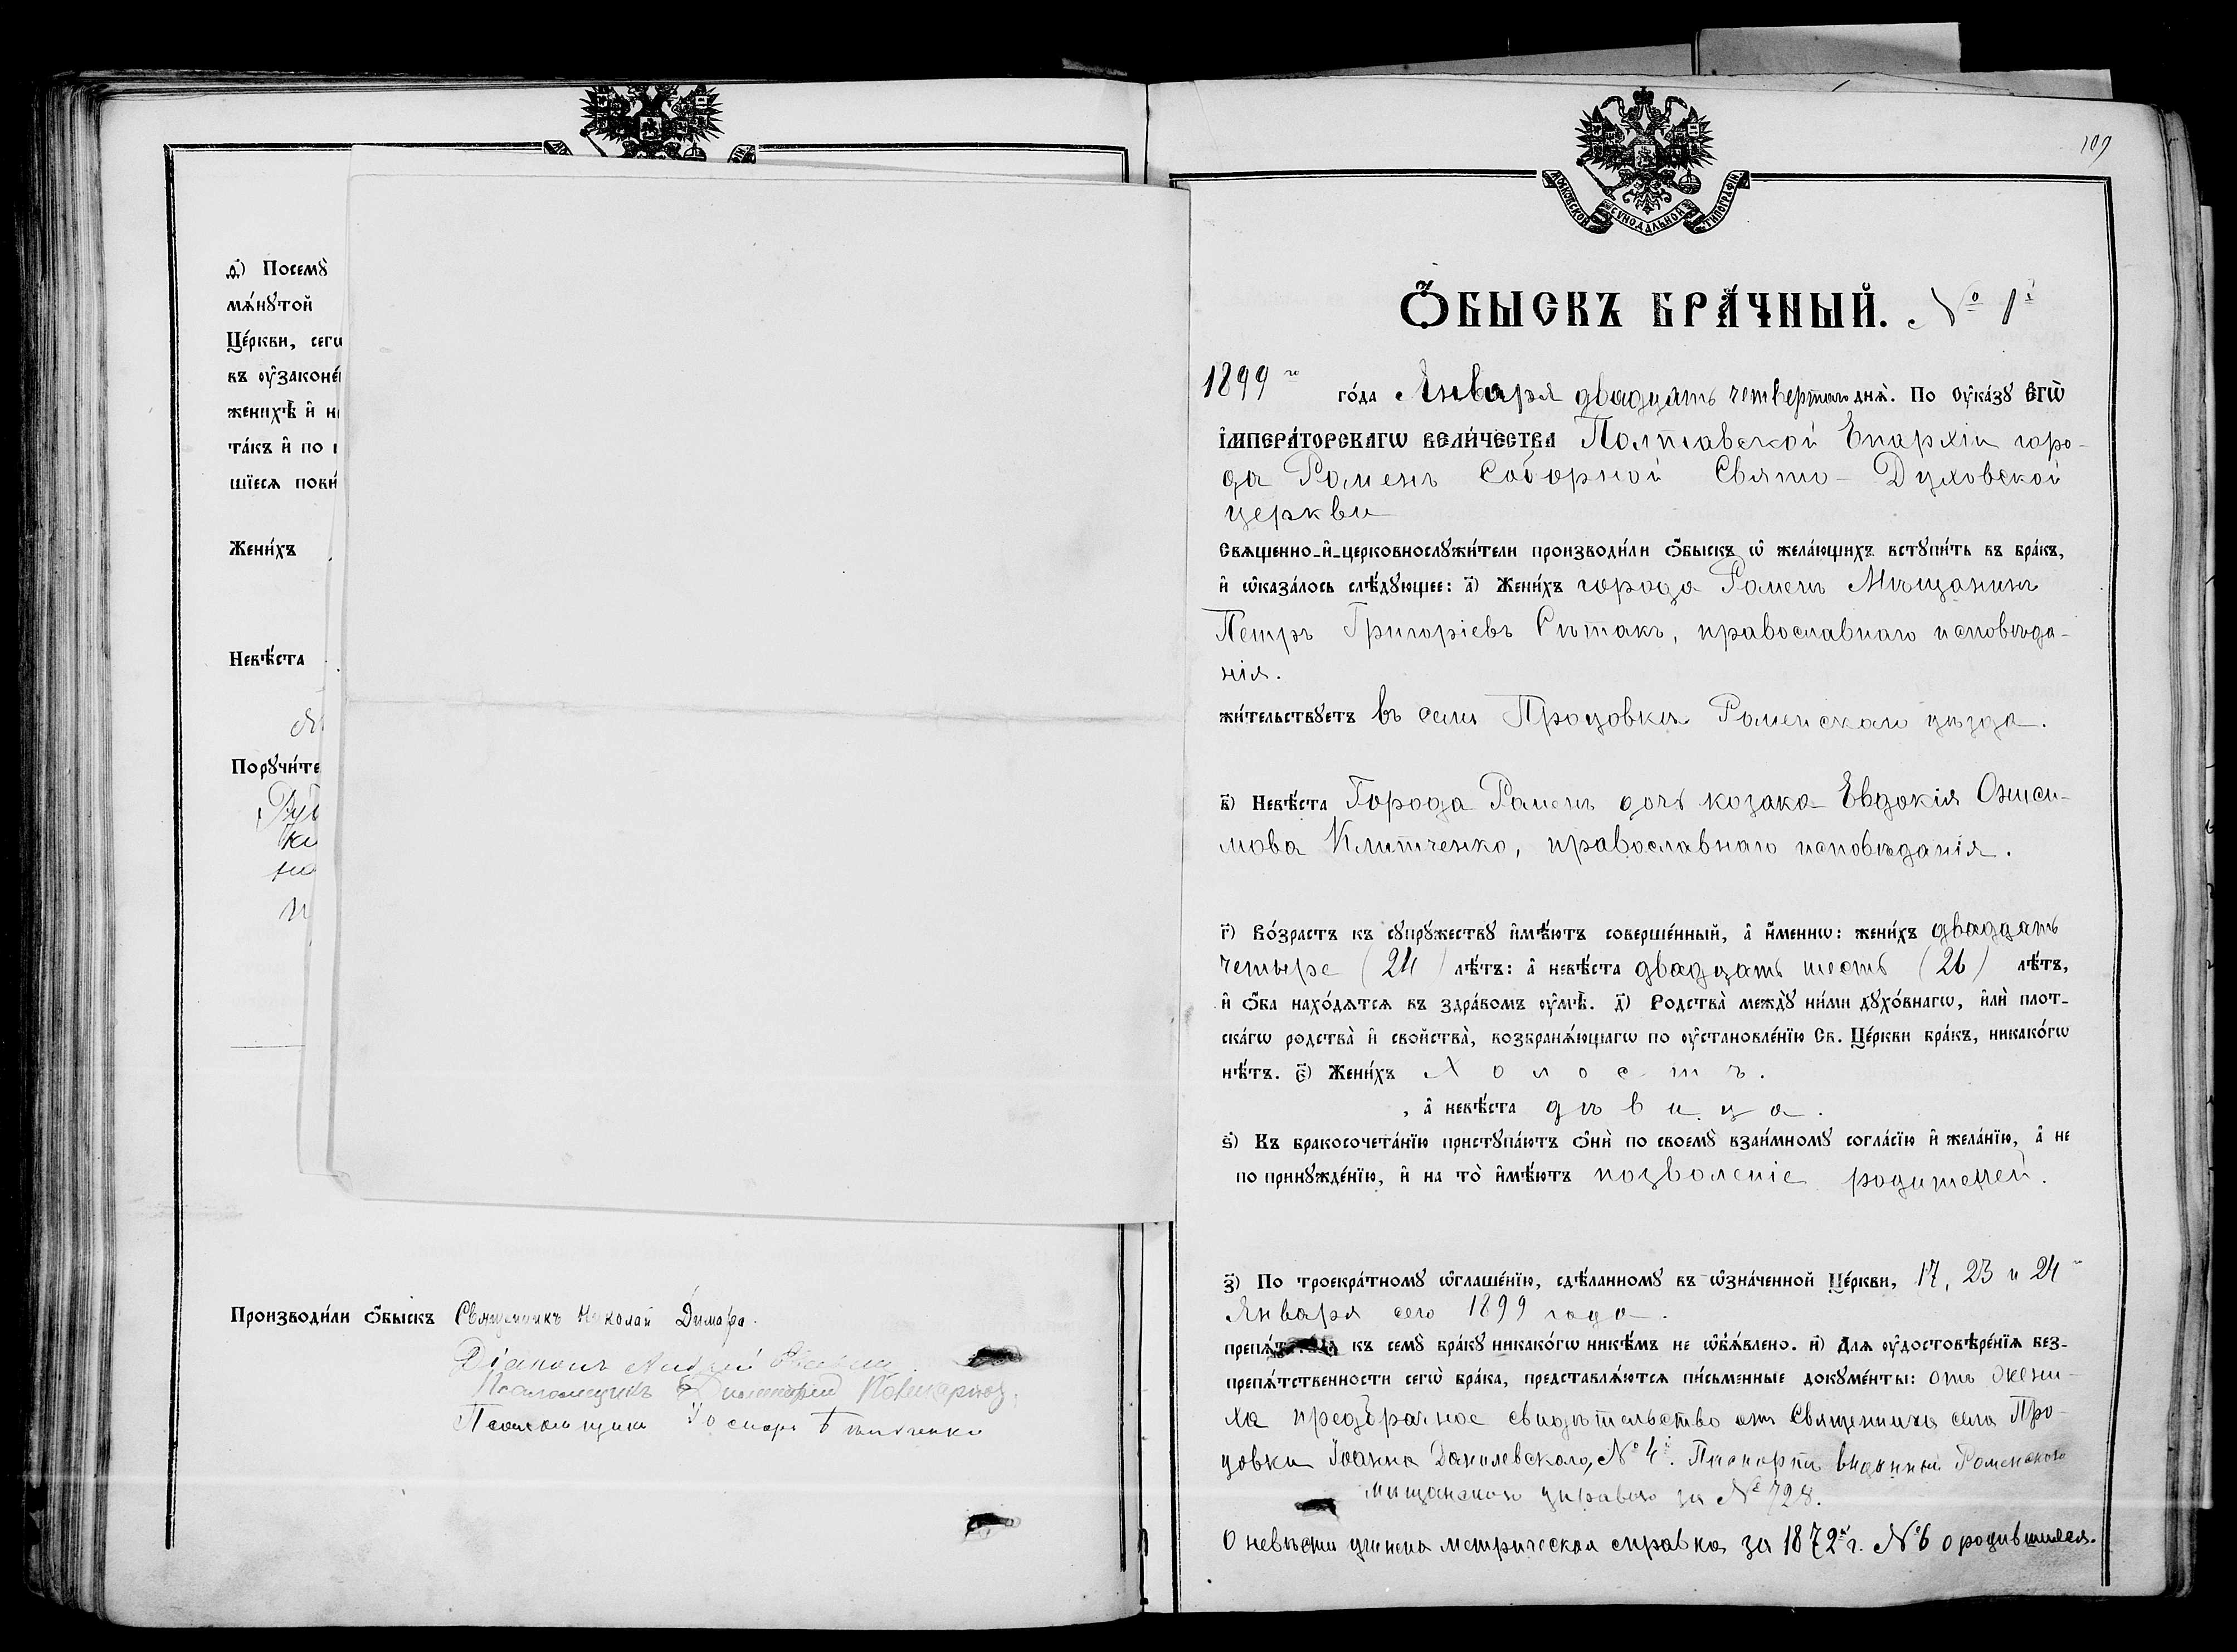 д҃) Посемꙋ̀
мѧ́нꙋтой
Це́ркви, сегѡ
въ ᲂу҆законе́
женихѣ̀ и҆ н
та́къ и҆ по
шїесѧ пови
Жени́хъ
Невѣ́ста
Порꙋчи́те
Производи́ли ѻ҆́быскъ Священникъ Николай Димара.
Діаконъ Андрей
Псаломщикъ Димитрій
Псаломщикъ
109
МОСКОВСКОЙ СѴНОДАЛЬНОЙ ТИПОГРАФІИ
Ѻ҆́БЫСКЪ БРА́ЧНЫЙ. № 1й
1899 го го́да Января двадцать четвертаго днѧ̀. По ᲂу҆ка́зꙋ Є҆гѡ̀
І҆МПЕРА́ТОРСКАГѠ ВЕЛИ́ЧЕСТВА Полтавской Епархіи горо-
да Роменъ Соборной Свято-Духовской
церкви
Свѧщенно-и҆-церковнослꙋжи́тели производи́ли ѻ҆́быскъ ѡ҆ жела́ющихъ встꙋпи́ть въ бра́къ,
и҆ ѡ҆каза́лось слѣ́дꙋющее: а҃) Жени́хъ города Роменъ Мѣщанинъ
Петръ Григоріевъ Сѣтакъ, православнаго исповѣда-
нія.
жи́тельствꙋетъ въ селѣ Процовкѣ Роменскаго уѣзда.
в҃) Невѣ́ста Города Роменъ дочь козака Евдокія Ониси-
мова Клитченко, православнаго исповѣданія.
г҃) Во́зрастъ къ сꙋпрꙋ́жествꙋ и҆мѣ́ютъ соверше́нный, а҆ и҆́меннѡ: жени́хъ двадцать
четыре (24) лѣ́тъ: а҆ невѣ́ста двадцать шесть (26) лѣ́тъ,
и҆ ѻ҆́ба нахо́дѧтсѧ въ здра́вомъ ᲂу҆мѣ̀. д҃) Родства̀ междꙋ̀ ни́ми дꙋхо́внагѡ, и҆лѝ плот-
ска́гѡ родства̀ и҆ свойства̀, возбранѧ́ющагѡ по ᲂу҆становле́нїю Св. Це́ркви бра́къ, никако́гѡ
нѣ́тъ. є҃) Жени́хъ Холостъ.
, а҆ невѣ́ста дѣвица.
ѕ҃) Къ бракосочета́нїю пристꙋпа́ютъ ѻ҆нѝ по своемꙋ̀ взаи́мномꙋ согла́сїю и҆ жела́нїю, а҆ не
по принꙋжде́нїю, и҆ на то̀ и҆мѣ́ютъ позволеніе родителей.
з҃) По троекра́тномꙋ ѡ҆глаше́нїю, сдѣ́ланномꙋ въ ѡ҆зна́ченной Це́ркви, 17, 23 и 24го
Января сего 1899 года.
къ семꙋ̀ бра́кꙋ никако́гѡ никѣ́мъ не ѡ҆б̾ѧ́влено. и҃) Длѧ ᲂу҆достовѣре́нїѧ без-
препѧ́тственности сегѡ̀ бра́ка, представлѧ́ютсѧ пи́сьменные докꙋме́нты: отъ жени-
ха предбрачное свидѣтельство отъ Священника села Про-
цовки Іоанна Данилевскаго, № 4й. Паспортъ выданный Роменскою
мѣщанскою управою за № 728.
О невѣстѣ учинена метрическая справка за 1872й г. № 6 о родившихся.